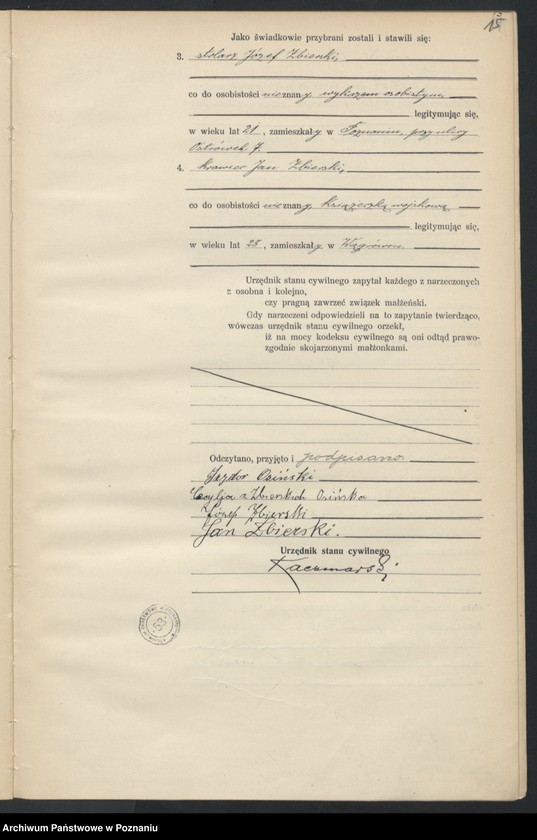 15
Jako świadkowie przybrani zostali i stawili się:
3. stolarz Józef Zbierski,
co do osobistości nieznany, wykazem osobistym
legitymując się,
w wieku lat 21, zamieszkały w Poznaniu, przy ulicy
Ostrówek 7.
4. Krawiec Jan Zbierski,
co do osobistości nieznany, książeczką wojskową
legitymując się,
w wieku lat 25, zamieszkały w Wągrówcu.
Urzędnik stanu cywilnego zapytał każdego z narzeczonych
z osobna i kolejno,
czy pragną zawrzeć związek małżeński.
Gdy narzeczeni odpowiedzieli na to zapytanie twierdząco,
wówczas urzędnik stanu cywilnego orzekł,
iż na mocy kodeksu cywilnego są oni odtąd prawo-
zgodnie skojarzonymi małżonkami.
Odczytano, przyjęto i podpisano
Izydor Osiński
Cecylja z Zbierskich Osińska
Józef Zbierski
Jan Zbierski.
Urzędnik stanu cywilnego
Kaczmarski
Archiwum Państwowe w Poznaniu